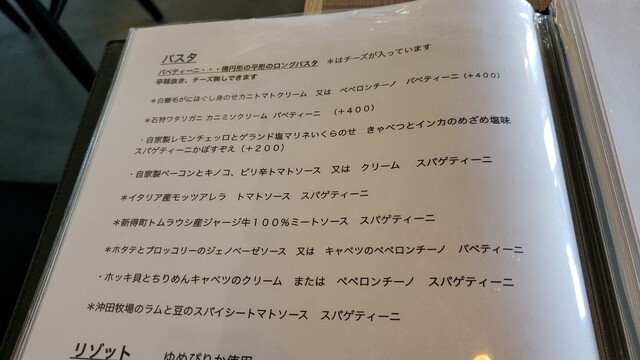 パスタ
バベティーニ・・・楕円形の平形のロングパスタ　＊はチーズが入っています
辛味抜き、チーズ無しできます
＊白糠毛がにほぐし身のせカニトマトクリーム　又は　ペペロンチーノ　バベティーニ（＋４００）
＊石狩ワタリガニ カニミソクリーム　バベティーニ　（＋４００）
・自家製レモンチェッロとゲランド塩マリネいくらのせ　きゃべつとインカのめざめ塩味
スパゲティーニかぼすぞえ（＋２００）
・自家製ベーコンとキノコ、ピリ辛トマトソース　又は　クリーム　スパゲティーニ
＊イタリア産モッツアレラ　トマトソース　スパゲティーニ
＊新得町トムラウシ産ジャージ牛１００％ミートソース　スパゲティーニ
＊ホタテとブロッコリーのジェノベーゼソース　又は　キャベツのペペロンチーノ　バベティーニ
・ホッキ貝とちりめんキャベツのクリーム　または　ペペロンチーノ　スパゲティーニ
＊沖田牧場のラムと豆のスパイシートマトソース　スパゲティーニ
リゾット　ゆめぴりか使用